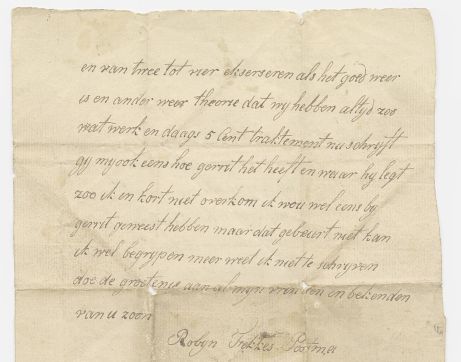 en van twee tot vier ekserseren als het goed weer
is en ander weer theorie dat wy hebben altyd zoo
wat werk en daags 5 Cent traktement nu schryft
gy my ook eens hoe gerrit het heeft en waar hy legt
zoo ik en kort niet overkom ik wou wel eens by
gerrit geweest hebben maar dat gebeurt niet kan
ik wel begrypen meer weet ik niet te schryven
doe de groetenis aan al myn vrienden en bekenden
van u zoon
Robyn Fekkes Postma